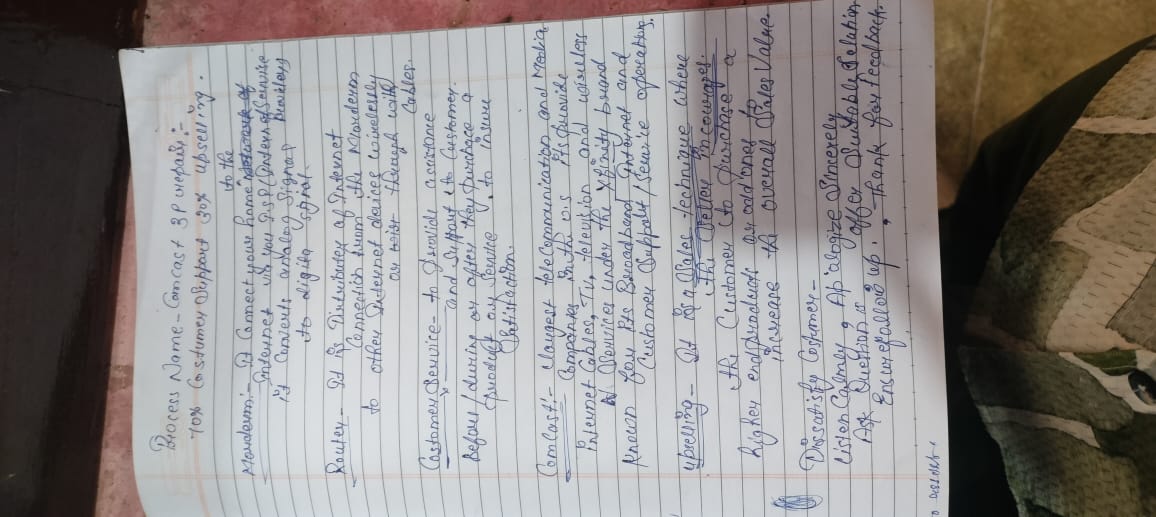 Process Name - Comcast 3P Prepaid :-
70% Costumer Support 30% upselling.
Morderm :- It Connect your home to the
Internet is you ISP (Internet Service Providers
it Converts analog Signal
to digital
Router - It is Distributer of Internet
Connection from the Morderm
to other Internet devices wirelessly
or with through with Cables.
Costomer Service - to Provide assistance
and Support to Customer
Before / during or after they purchase a
product or Service, to insure
Satisfaction.
Comcast :- Largest telecommunication and Media
Companies in the US its provide
Internet Cables, Tv, television and wireless
Services under the Xfinity brand
Known for its Broadband Internet and
Customer Support / Service operations.
Upselling - It is a Sales technique where
the Seller incourages
the Customer to purchase a
higher end products or addones to
increase the overall Sales Value.
Dissatisfy Costomer -
Listen Calmly, Apalogize Sincerely
Ask Question, offer Suitable Solution
Ensure follow up, Thank for feedback.